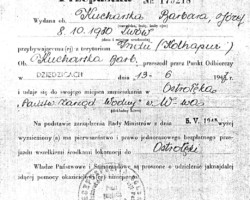 Przepustka № 175218
Wydana ob. Kucharska Barbara
8.10.1910 Lwów
przybywającej z terytorium Indii (Kolhapur)
Ob. Kucharska Barb. przeszedł przez Punkt Odbiorczy
w DZIEDZICACH dnia 13-6 194
i udaje się do swojego miejsca zamieszkania w Ostrołęka
Państw. Zarząd Wodny w W-wa
Na podstawie zarządzenia Rady Ministrów z dn. 5.V.194
wymieniony(a) ma pierwszeństwo i prawo jednorazowego bezpłatnego
wszelkimi środkami lokomocji do Ostrołęki
Władze Państwowe i Samorządowe są proszone o udzielenie jaknajdalej
idącej pomocy okazicielowi niniejszego.